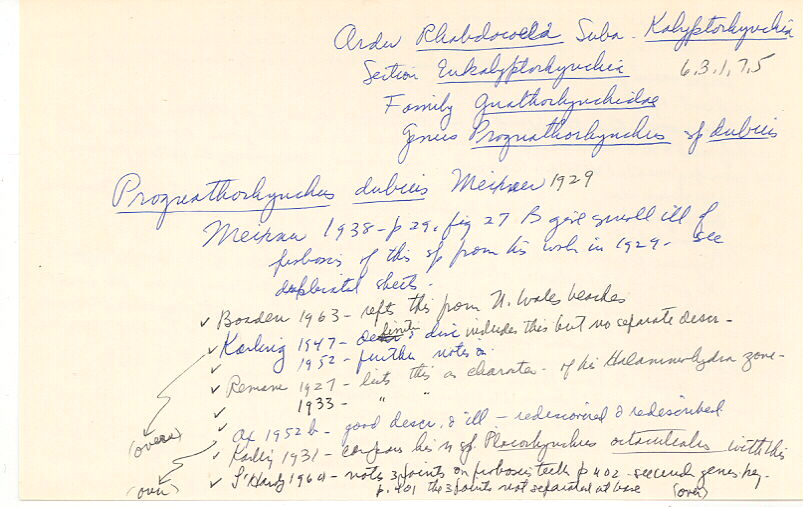 Order Rhabdocoela Subo. Kalyptorhynchia
Section Eukalyptorhynchia 6.3.1.7.5
Family Gnathorhynchidae
Genus Prognathorhynchus sp dubius
Prognathorhynchus dubius Meixner 1929
Meixner 1938 - p 29, fig 27 B give small ill of
proboscis of this sp from his work in 1929 - see
duplicated sheets.
✓ Boaden 1963 - repts this from N. Wales beaches
✓ Karling 1947 - finite & disc includes this but no separate descr -
✓ 1952 - further notes on
✓ Remane 1927 - lists this as character - of his Halammohydra zone -
✓ 1933 - " "
✓ Ax 1952b - good descr. & ill - rediscovered & redescribed
(over)
✓ Karling 1931 - compares his n sp Placorhynchus octaculeatus with this
✓ L'Hardy 1964 - notes 3 points on proboscis teeth p 402 - second genes key -
(over) p. 401 the 3 points not separated at base (over)